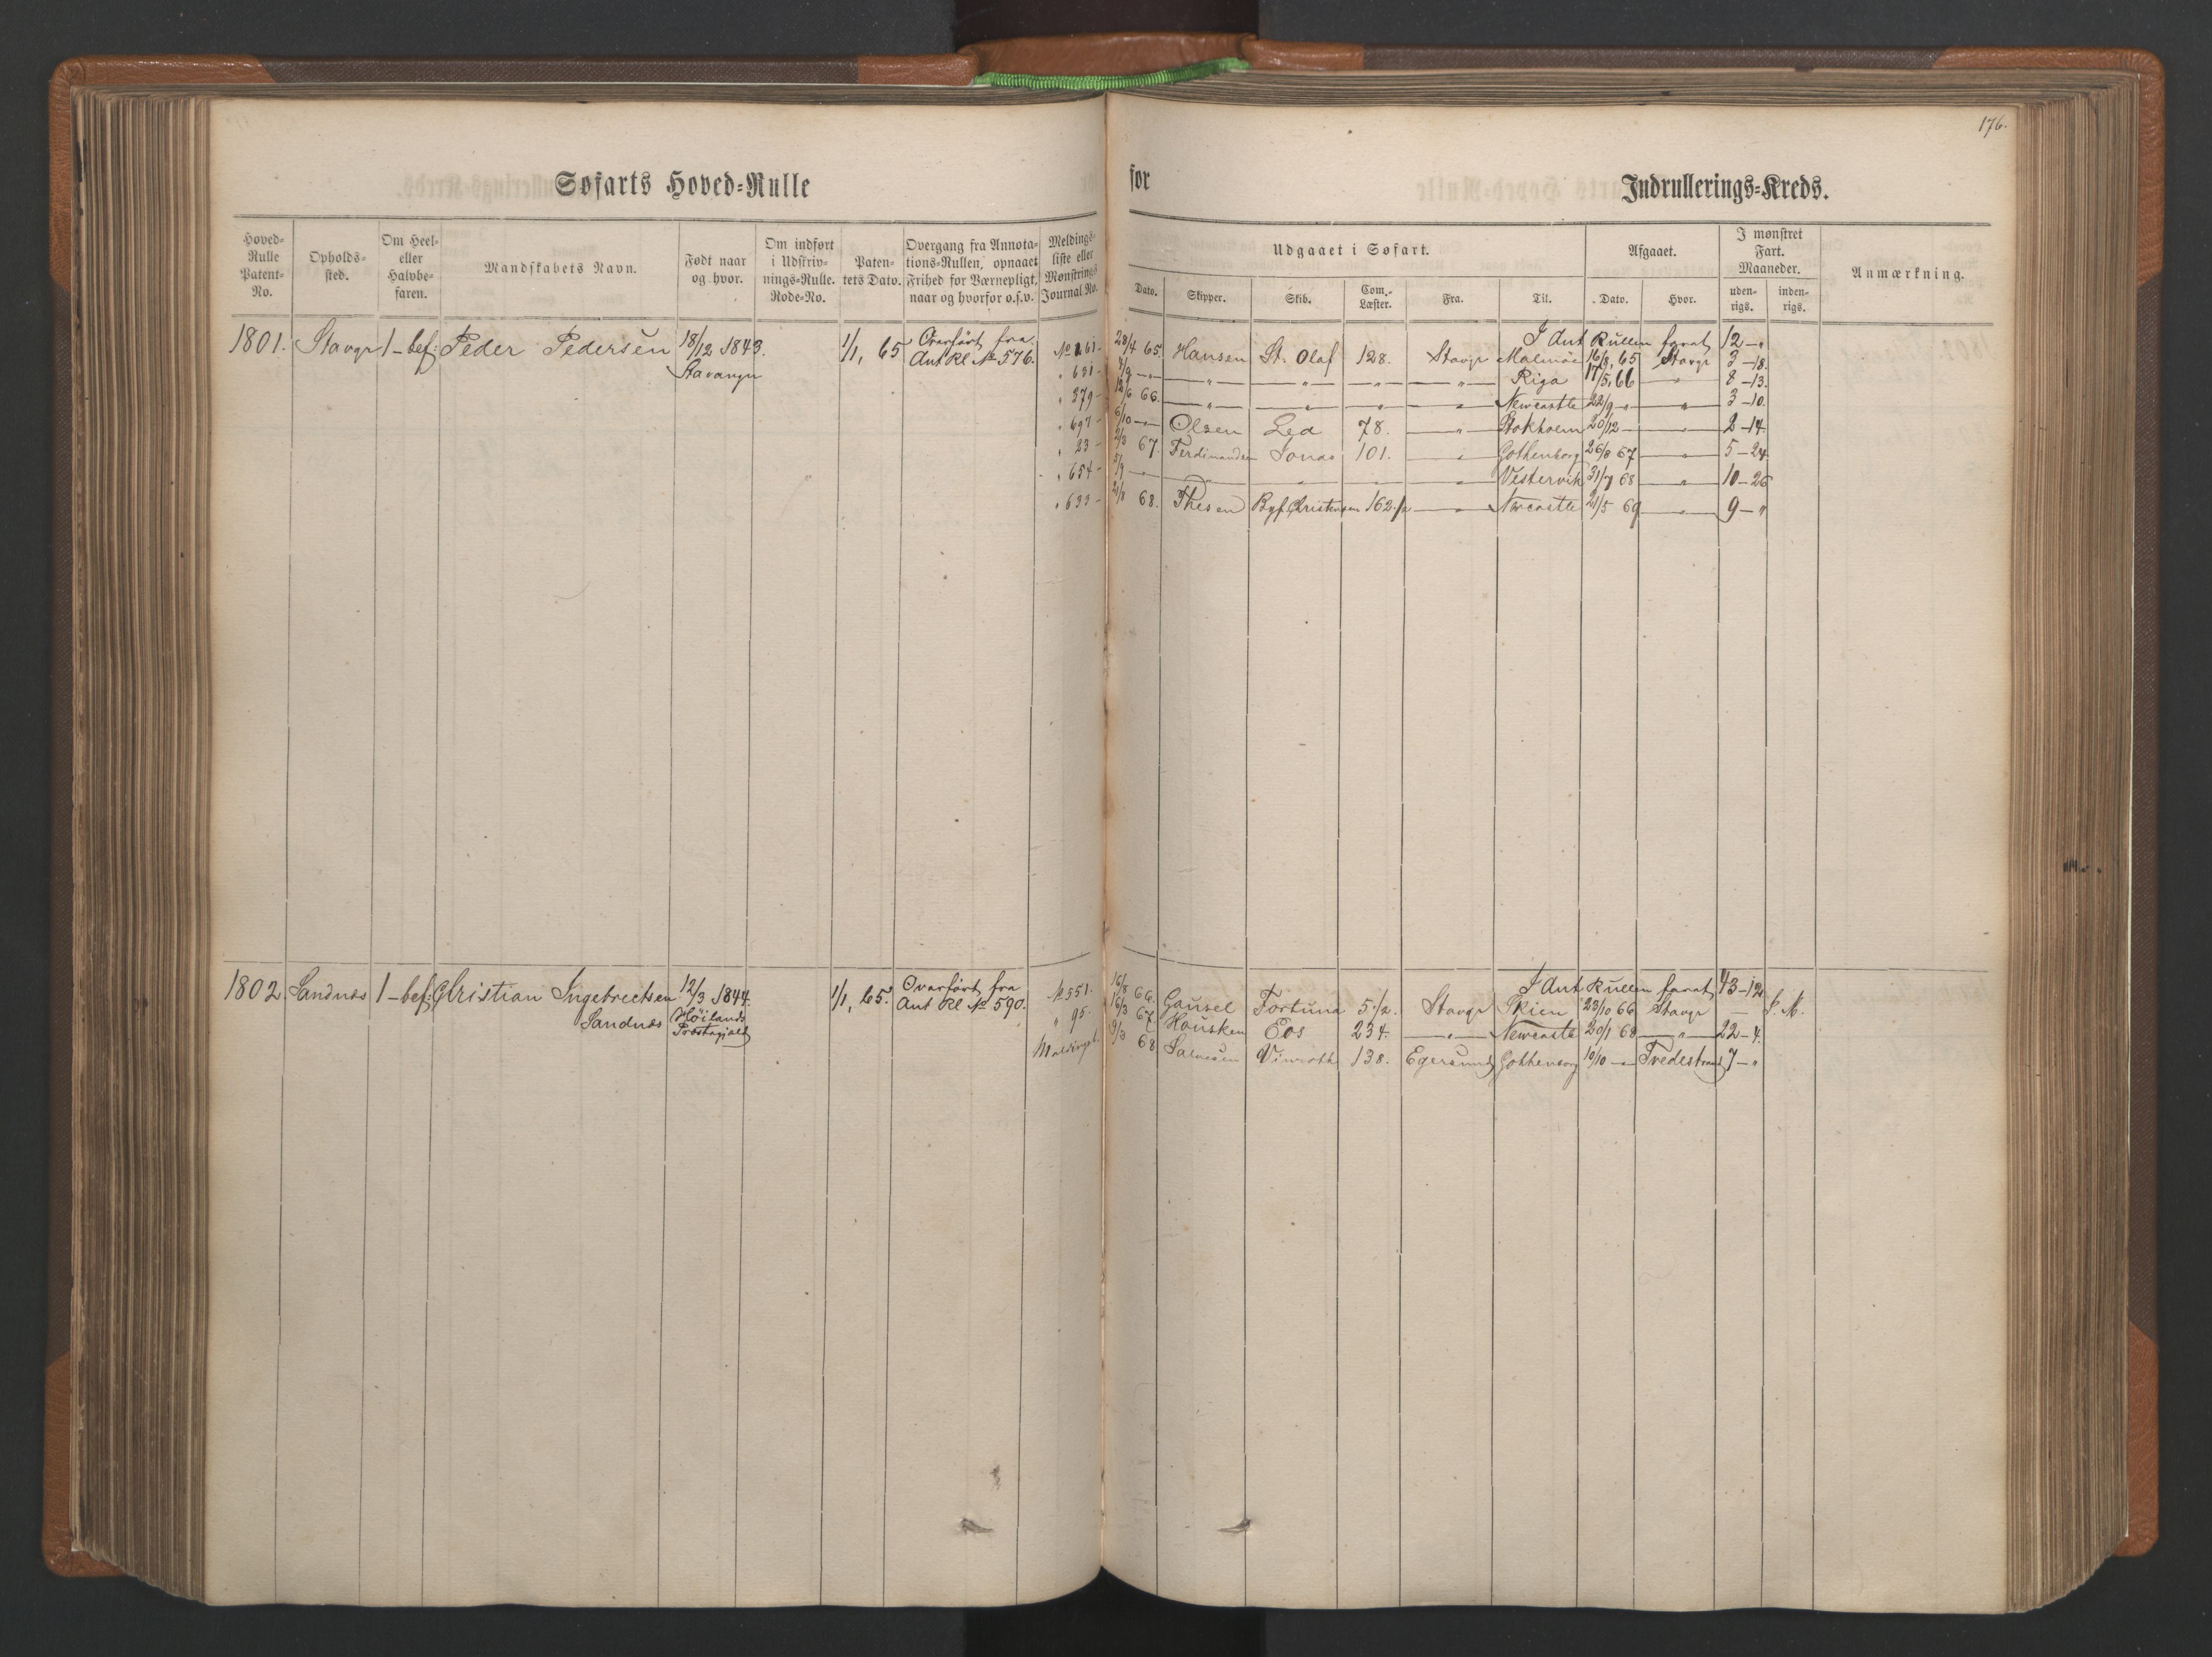 176.
Søfarts Hoved=Rulle for Indrullerings=Kreds.
Hoved=Rulle Patent=No. Opholds=sted. Om Heel= eller Halvbe=faren. Mandskabets Navn. Født naar og hvor. Om indført i Udskriv=nings=Rulle. Rode=No. Paten=tets Dato. Overgang fra Annota=tions=Rullen, opnaaet Frihed for Værnepligt, naar og hvorfor o.s.v. Meldings=liste eller Mønstrings Journal No.
Udgaaet i Søfart. Afgaaet. I mønstret Fart. Maaneder. Anmærkning.
Dato. Skipper. Skib. Com.=Læster. Fra. Til. Dato. Hvor. uden=rigs. inden=rigs.
1801. Stavgr 1-bef: Peder Pedersen 18/12 1843. 1/1, 65 Overført fra I Ant Rullen farat 12 - "
Stavanger Ant Rl No 576. No 161 - 28/4 65. Hansen St. Olaf 128. Stavgr Malmöe 16/8, 65 Stavgr 3 - 18.
" 631 - 4/9 - " - " - " - " - " Riga 17/5, 66 - " 8 - 13.
" 279 - 12/6 66. - " - " - " - " Newcastle 22/9 - " - " 3 - 10.
" 697 - 6/10 - " Olsen Lea 78. - " Stokholm 20/12 - " - " 2 - 14.
" 23 - 2/3 67. Ferdinandsen Jonas 101. - " Gothenborg 26/8 67 - " 5 - 24.
" 654 - 5/9 - " - " - " - " - " Vestervik 31/7 68 - " 10 - 26
" 633 - 21/8 68. Thesen Byf. Christensen 162 1/2 - " Newcastle 21/5 69 - " 9 - "
1802. Sandnæs 1-bef: Christian Ingebrectsen 12/3 1844. 1/1, 65. Overført fra I Ant Rullen farat 43 - 12
Sandnæs Høilands Præstegjeld Ant Rl No 590. No 551. 16/8 66. Gausel Fortuna 5 1/2. Stavgr Skien 23/10 66 Stavgr - P. M.
" 95. 16/3 67. Hausken Eos 234. - " Newcastle 20/1 68 - " 22 - 4.
Meldingsl. 9/3 68 Salvesen Vinroth 138. Egersund Gothenborg 10/10 - " Tvedestrand 7 - "